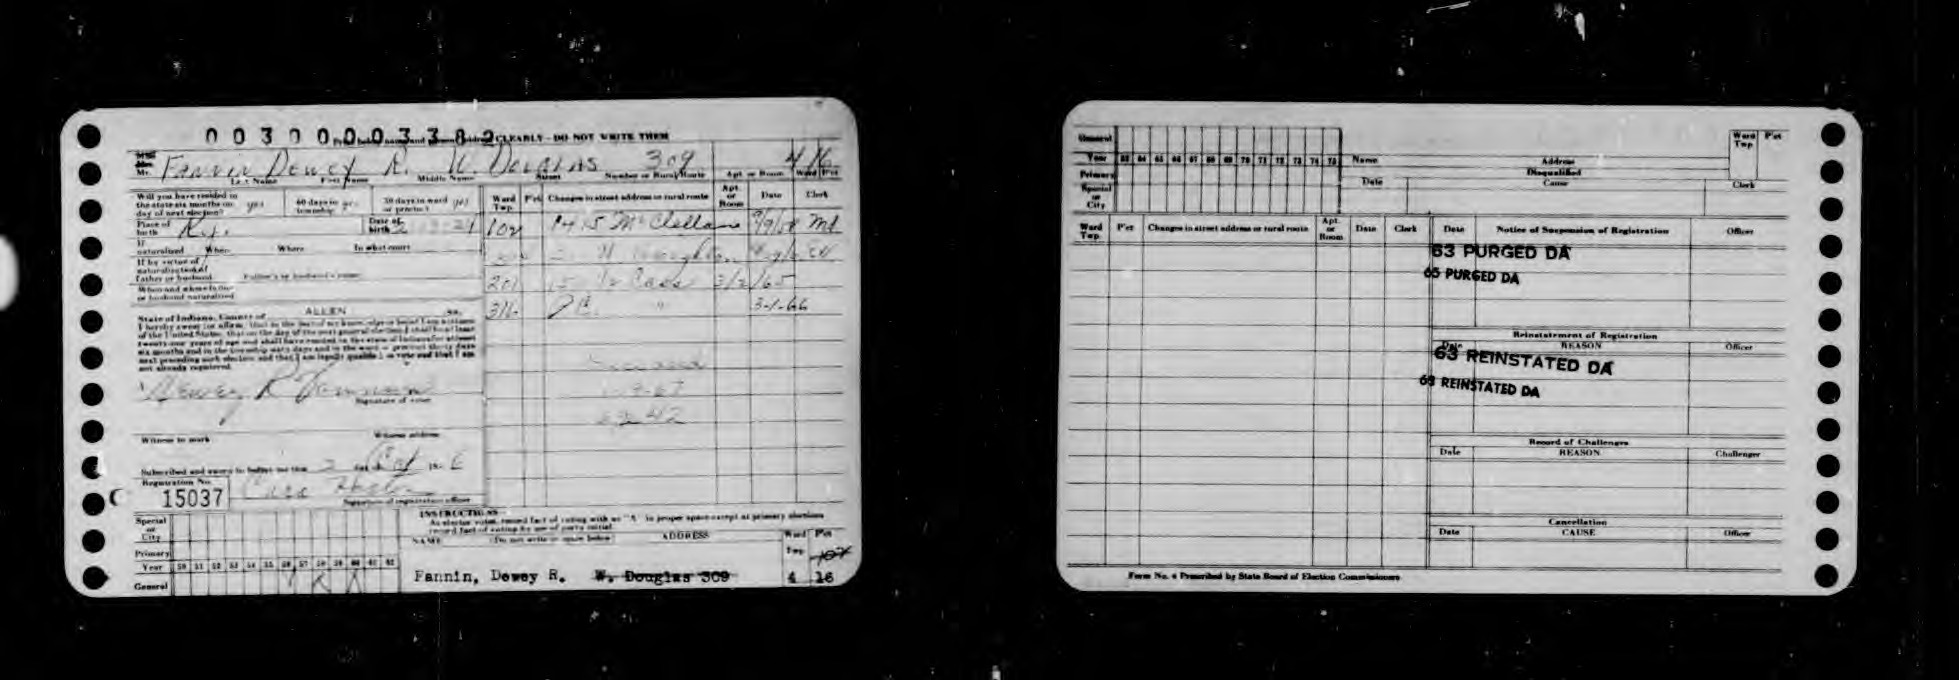 0030000338 2 CLEARLY - DO NOT WRITE THEM
Mr. Fannin Dewey R. W. Douglas 309 4 16
Last Name First Name Middle Name Street Number or Rural Route Apt. or Room Ward P'ct
Will you have resided in the state six months on day of next election? yes 60 days in township? yes 30 days in ward or precinct? yes
Place of birth Ky. Date of birth
If naturalized When Where In what court
If by virtue of naturalization of father or husband Father's or husband's name
When and where father or husband naturalized
State of Indiana, County of ALLEN ss.
I hereby swear (or affirm) that to the best of my knowledge or belief I am a citizen
of the United States, that on the day of the next general election I shall be at least
twenty-one years of age and shall have resided in the state of Indiana for at least
six months and in the township sixty days and in the ward or precinct thirty days
next preceding such election and that I am legally qualified to vote and that I am
not already registered.
Dewey R Fannin
Signature of voter
Witness to mark Witness address
Subscribed and sworn to before me this 2 day of Oct 19
Registration No.
15037
Signature of registration officer
Ward Twp. P'ct Changes in street address or rural route Apt. or Room Date Clerk
102 1415 McClellan 9/9/58 Md
201 15 1/2 Cass 3/2/65
316 " 3-1-66
INSTRUCTIONS
As elector votes, record fact of voting with an "X" in proper space except at primary elections
record fact of voting by use of party initial.
NAME (Do not write in space below) ADDRESS Ward Twp. P'ct
107
Fannin, Dewey R. W. Douglas 309 4 16
Special or City
Primary
Year 50 51 52 53 54 55 56 57 58 59 60 61 62
General
General
Year 63 64 65 66 67 68 69 70 71 72 73 74 75
Primary
Special or City
Name Address Ward Twp P'ct
Disqualified
Date Cause Clerk
Ward Twp. P'ct Changes in street address or rural route Apt. or Room Date Clerk
Date Notice of Suspension of Registration Officer
63 PURGED DA
65 PURGED DA
Reinstatement of Registration
Date REASON Officer
63 REINSTATED DA
REINSTATED DA
Record of Challenges
Date REASON Challenger
Cancellation
Date CAUSE Officer
Form No. 4 Prescribed by State Board of Election Commissioners